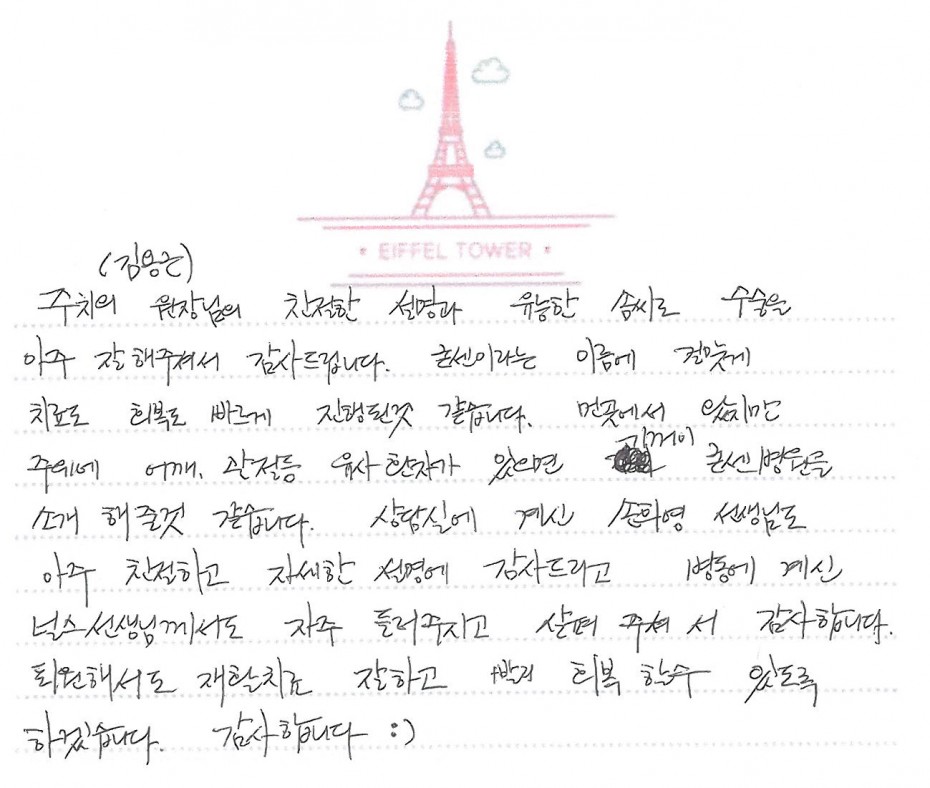 · EIFFEL TOWER ·
(김용근)
주치의 원장님의 친절한 설명과 유능한 솜씨로 수술을
아주 잘 해주셔서 감사드립니다. 굳센이라는 이름에 걸맞게
치료도 회복도 빠르게 진행된것 같습니다. 먼곳에서 왔지만
주위에 어깨, 관절등 유사 환자가 있으면 기꺼이 굳센병원을
소개 해줄것 같습니다. 상담실에 계신 손화영 선생님도
아주 친절하고 자세한 설명에 감사드리고 병동에 계신
널스선생님께서도 자주 들러주시고 살펴 주셔서 감사합니다.
퇴원해서도 재활치료 잘하고 빨리 회복 할수 있도록
하겠습니다. 감사합니다 :)